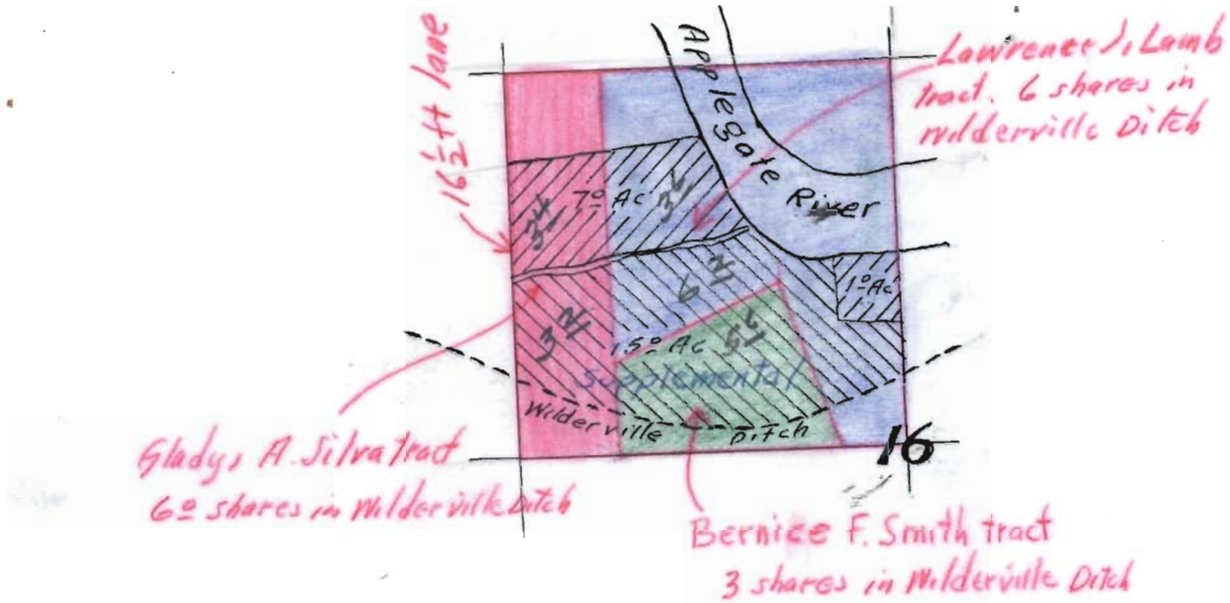 16½ ft lane
Applegate
River
Lawrence J. Lamb
tract. 6 shares in
Wilderville Ditch
7º Ac
1º Ac
15º Ac
Supplemental
Wilderville Ditch
16
Gladys A. Silva tract
6º shares in Wilderville Ditch
Bernice F. Smith tract
3 shares in Wilderville Ditch